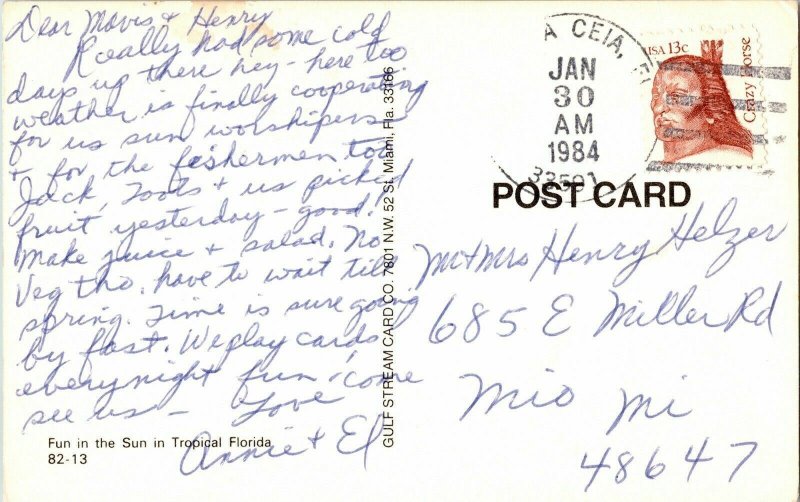 Dear Mavis + Henry
Really had some cold
days up there hey - here too
weather is finally cooperating
for us sun worshipers
+ for the fishermen too
Jack, Toots + us picked
fruit yesterday - good!
Make juice + salad. No
Veg tho. have to wait till
spring. Time is sure going
by fast. We play cards
everynight fun, come
see us - Love
Annie + El
Fun in the Sun in Tropical Florida
82-13
GULF STREAM CARD CO. 7801 N.W. 52 St. Miami, Fla. 33166
A CEIA, FL
JAN
30
AM
1984
33591
USA 13c
Crazy Horse
POST CARD
Mr + Mrs Henry Helzer
685 E Miller Rd
Mio Mi
48647